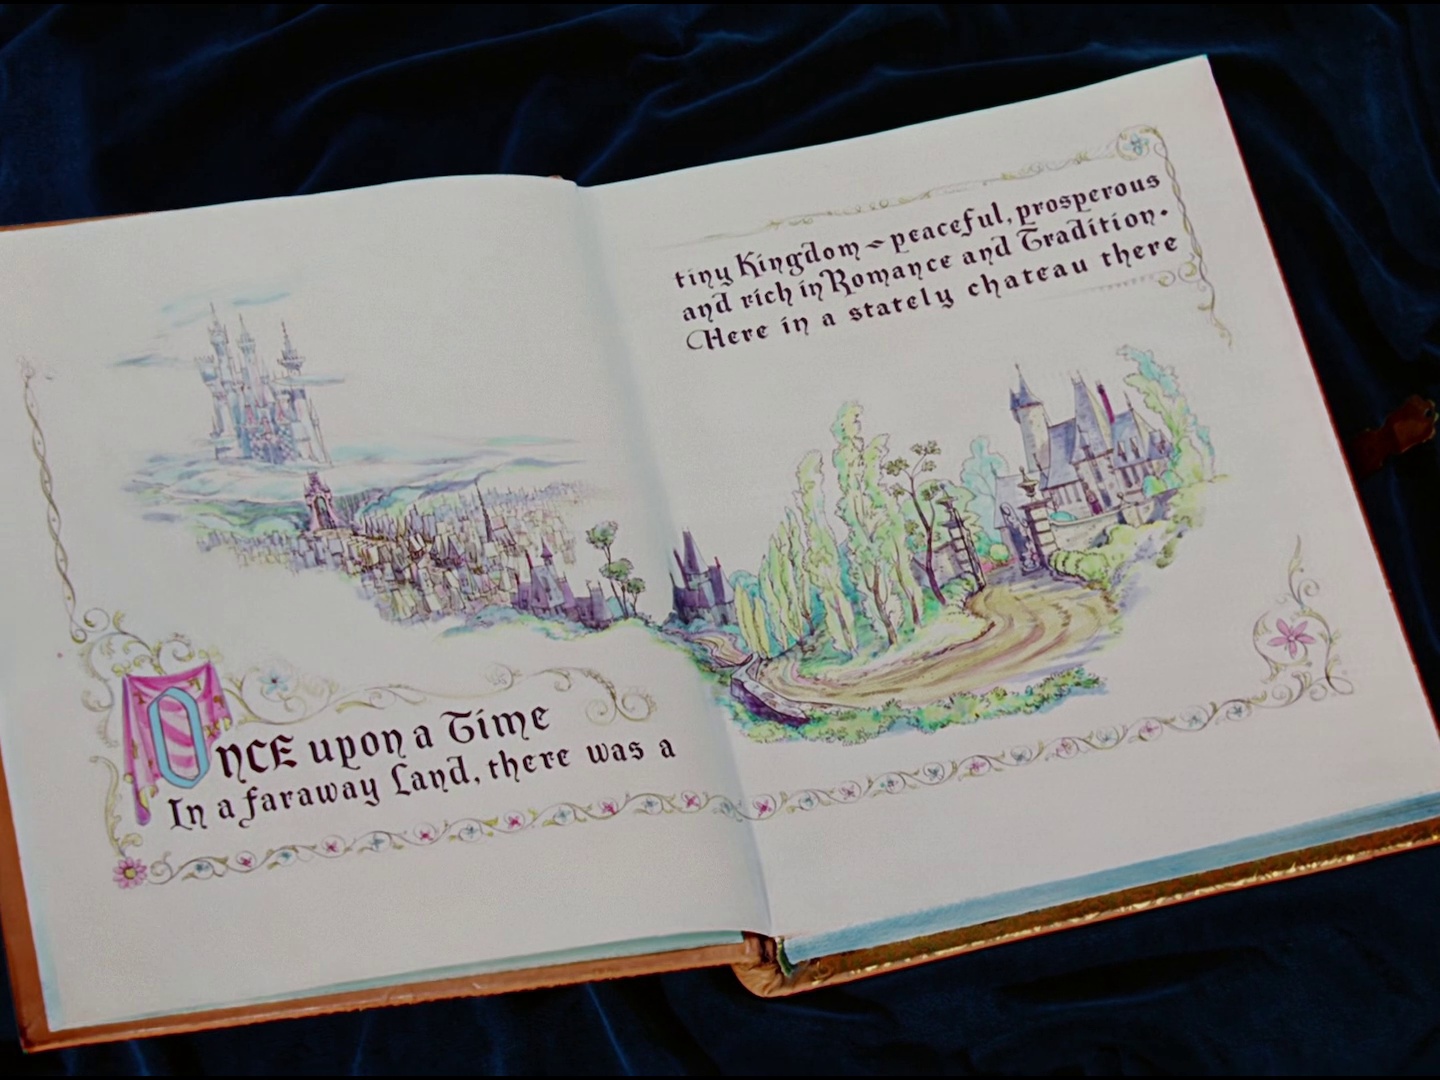 ONCE upon a Time
In a faraway Land, there was a
tiny Kingdom - peaceful, prosperous
and rich in Romance and Tradition.
Here in a stately chateau there